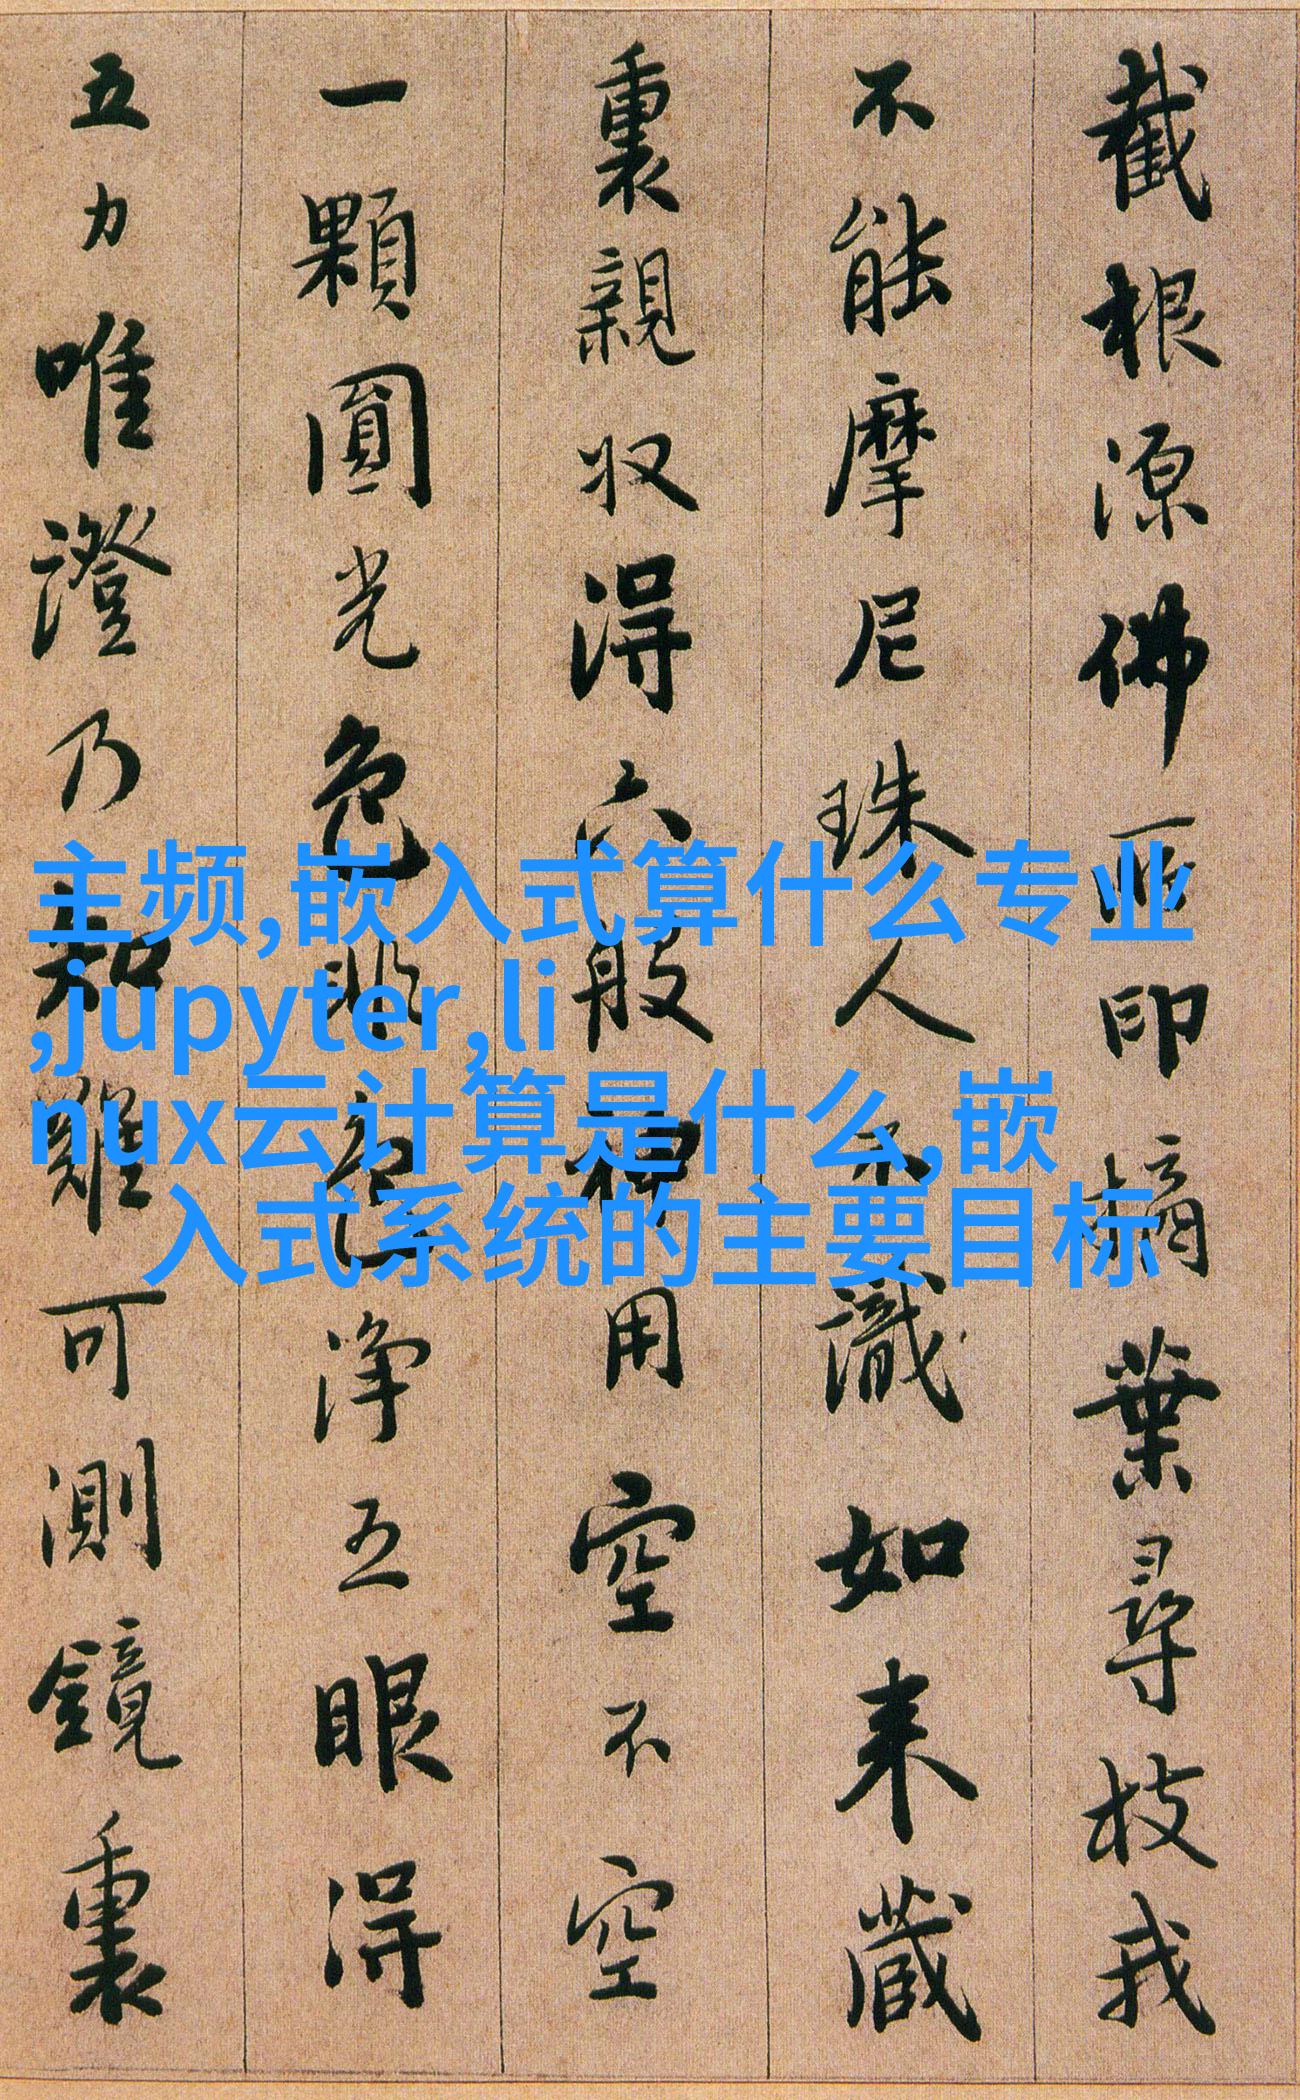 截根源佛所印摘葉尋枝我
不能摩尼珠人不識如来藏
裏親収得六般神用空不空
一顆圓光色非色淨五眼得
五力唯證乃知難可測鏡裏
主频,嵌入式算什么专业
,jupyter,li
nux云计算是什么,嵌
入式系统的主要目标